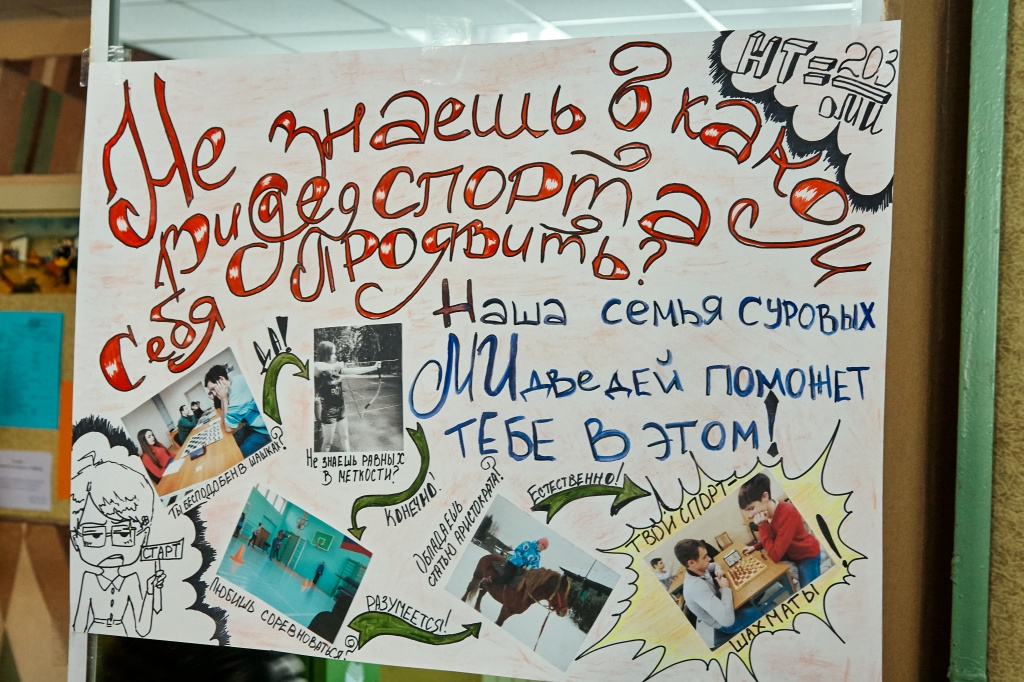 НТ=203
ОМИ
Не знаешь в какой
виде спорта
себя проявить?
Наша семья суровых
МИдведей поможет
тебе в этом!
СТАРТ
Ты бесподобен в шашках?
ДА!
Не знаешь равных
в меткости?
Конечно!
Любишь соревноваться?
Разумеется!
Обладаешь
статью аристократа?
Естественно!
Твой спорт=
Шахматы!